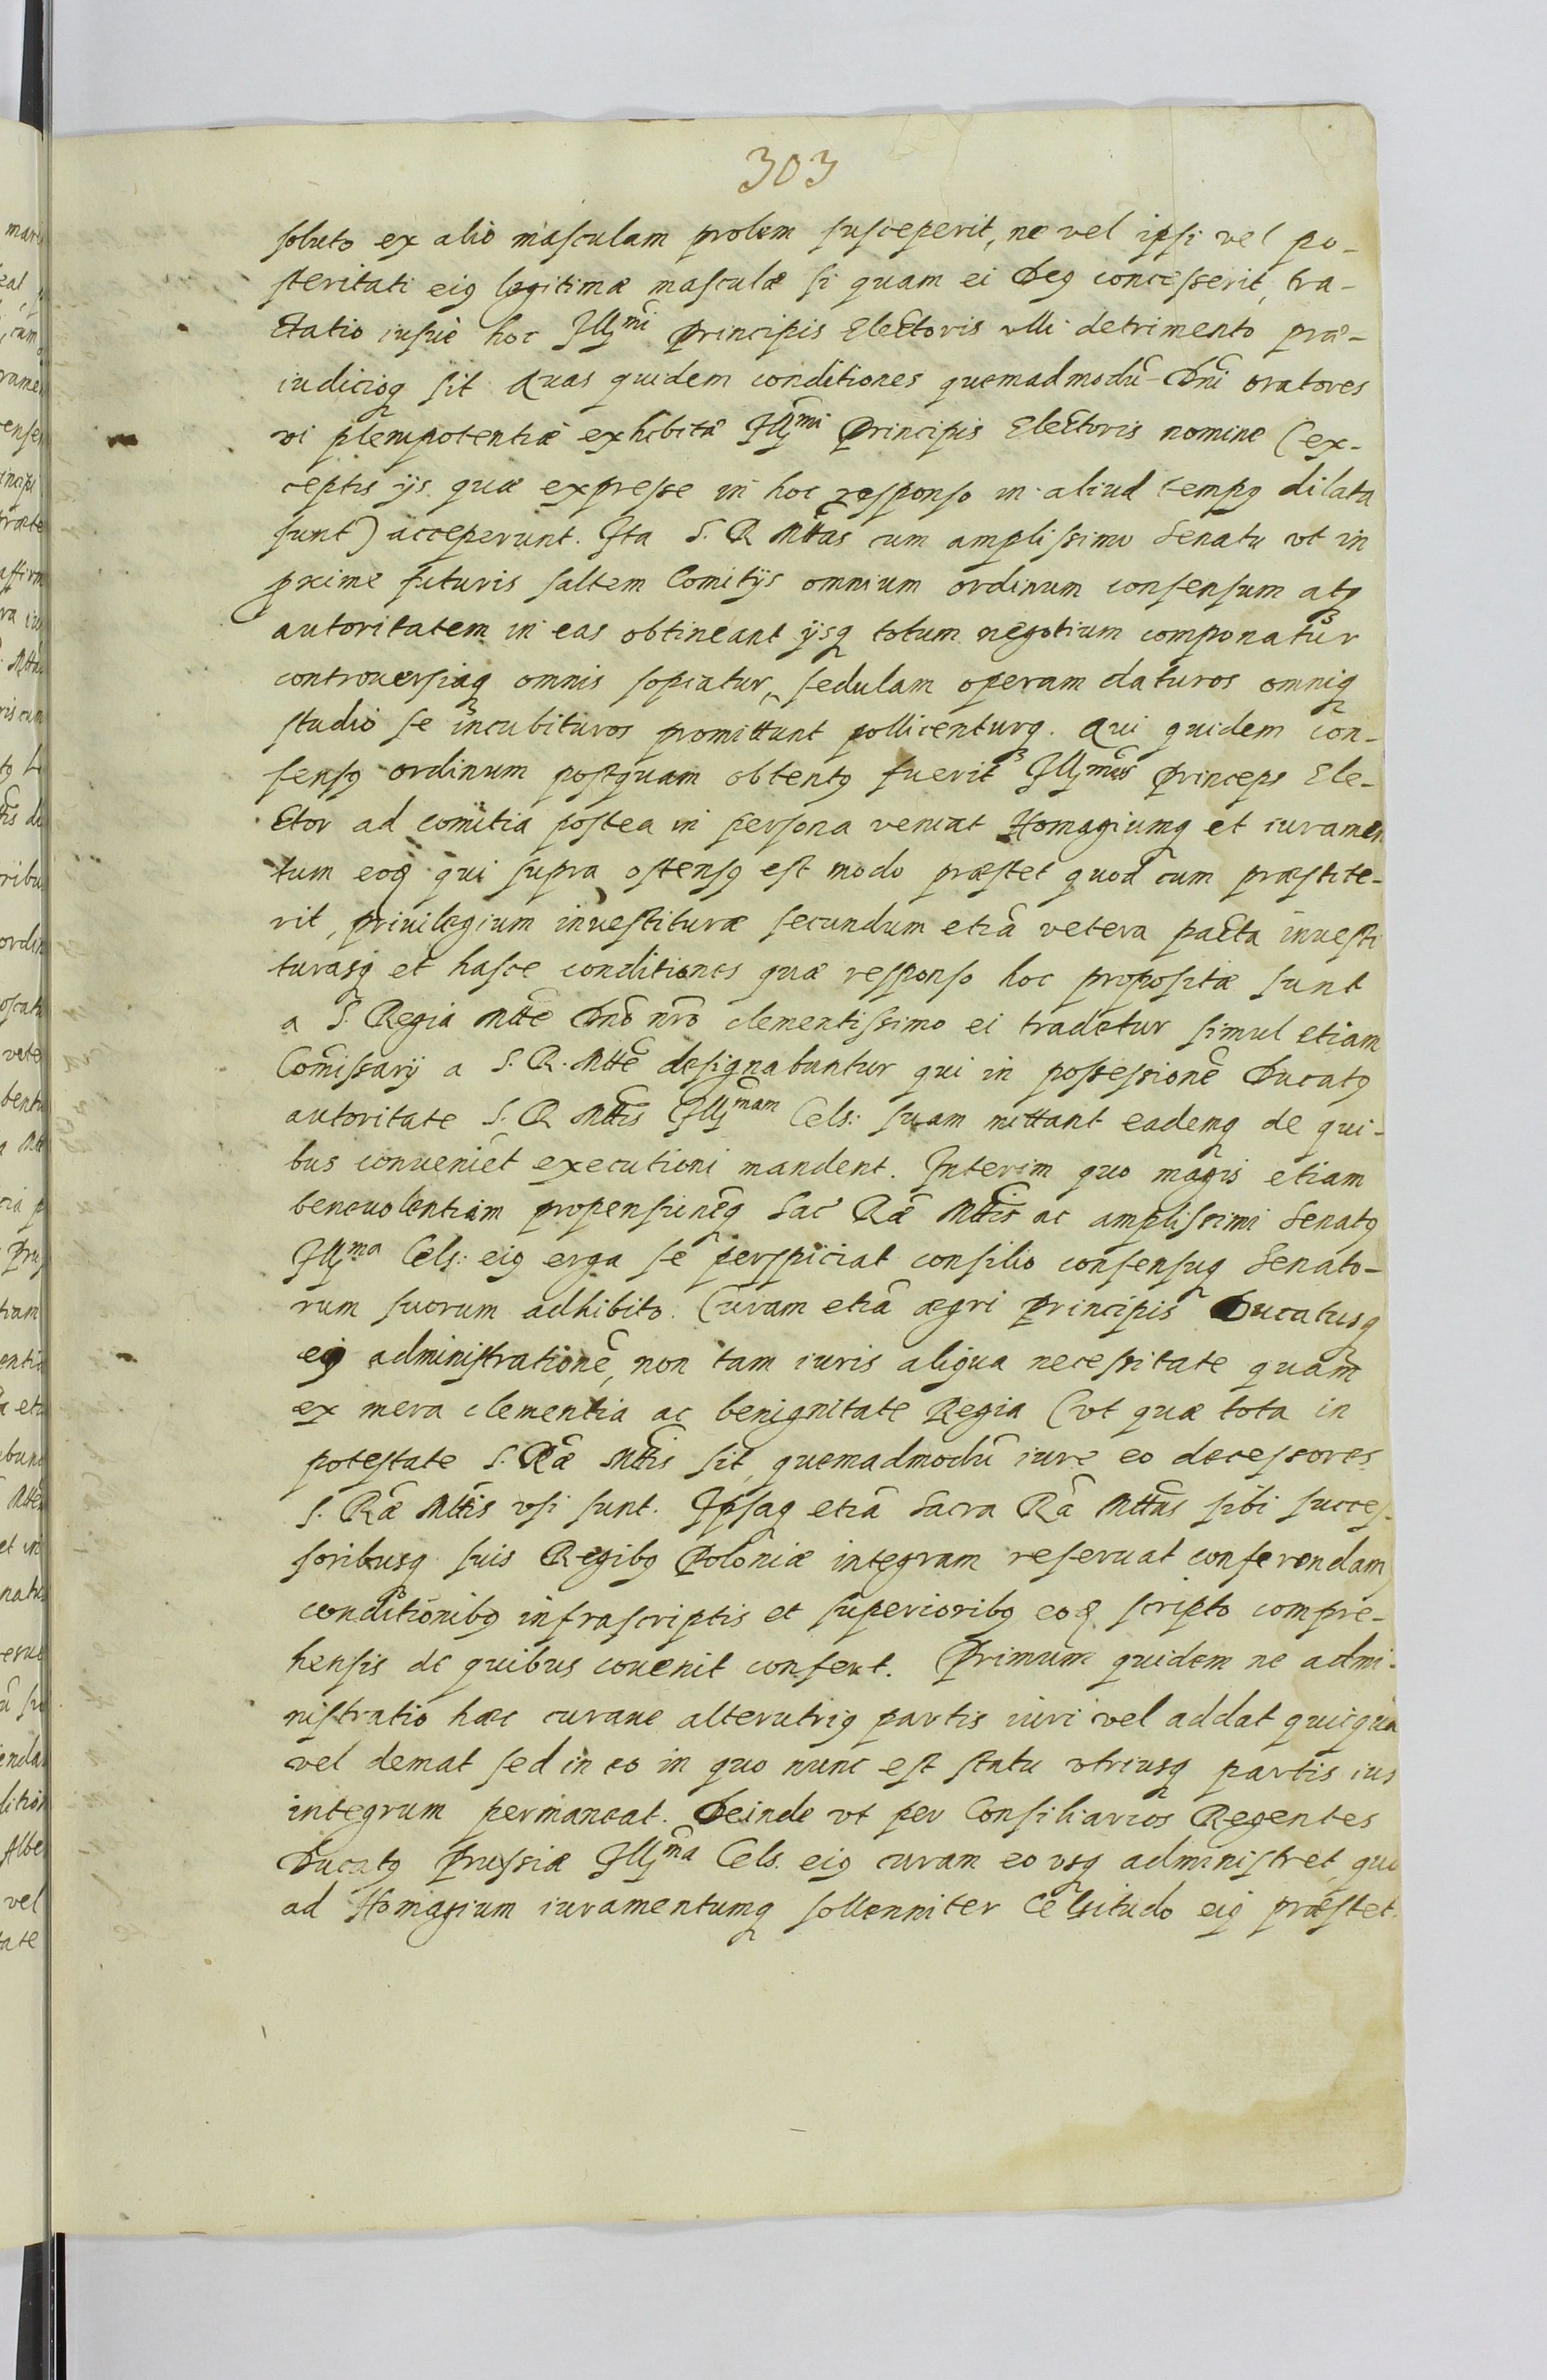 303
soluto ex alio masculam prolem susceperit, ne vel ipsi vel po-
steritati eiꝰ legitimæ masculæ si quam ei Deꝰ concesserit, tra-
ctatio iusue hoc Illmi Principis Electoris ulli detrimento præ-
iudicioq sit Quas quidem conditiones quemadmodū Dni oratores
vi plenipotentiæ exhibitæ Illmi Principis Electoris nomine (ex-
ceptis ijs quæ expresse in hoc responso in aliud tempꝰ dilata
sunt) acceperunt. Ita S. R Mttas cum amplissimo Senatu vt in
pxime futuris saltem Comitijs omnium ordinum consensum atq
autoritatem in eas obtineant ijsq totum negotium componatur
controuersiaq omnis sopiatur, sedulam operam daturos omniq
studio se incubituros promittunt pollicenturq. Qui quidem con-
sensꝰ ordinum postquam obtentꝰ fuerit Illmus Princeps Ele-
ctor ad comitia postea in persona veniat Homagiumq et iuramen
tum eoq qui supra ostensꝰ est modo præstet quod cum præstite-
rit, priuilegium inuestituræ secundum etiā vetera pacta inuesti
turasq et hasce conditiones quæ responso hoc propositæ sunt
a S. Regia Mtte Dno nro clementissimo ei tradetur simul etiam
Comissarij a S. R. Mtte designabuntur qui in possessionē Ducatꝰ
autoritate S. R Mttis Illmam Cels: suam mittant eademq de qui-
bus conueniet executioni mandent. Interim quo magis etiam
beneuolentiam propensionēq Sac Ræ Mttis ac amplissimi Senatꝰ
Illma Cels: eiꝰ erga se perspiciat consilio consensuq Senato-
rum suorum adhibito. Curam etiā ægri Principis Ducatusq
eiꝰ administrationē, non tam iuris aliqua necessitate quam
ex mera clementia ac benignitate Regia (vt quæ tota in
potestate S. Ræ Mttis sit, quemadmodū iure eo decessores
S. Ræ Mttis vsi sunt. Ipsaq etiā Sacra Ra Mttas sibi succes-
soribusq suis Regibꝰ Poloniæ integram reseruat conferendam
conditionibꝰ infrascriptis et superioribꝰ eoq scripto compre-
hensis de quibus conuenit confert. Primum quidem ne admi-
nistratio hæc curaue alterutriꝰ partis iuri vel addat quicquā
vel demat sed in eo in quo nunc est statu vtriusq partis ius
integrum permaneat. Deinde vt per Consiliarios Regentes
Ducatꝰ Prussiæ Illma Cels. eiꝰ curam eo vsq administret, quo
ad Homagium iuramentumq sollenniter Celsitudo eiꝰ præstet.